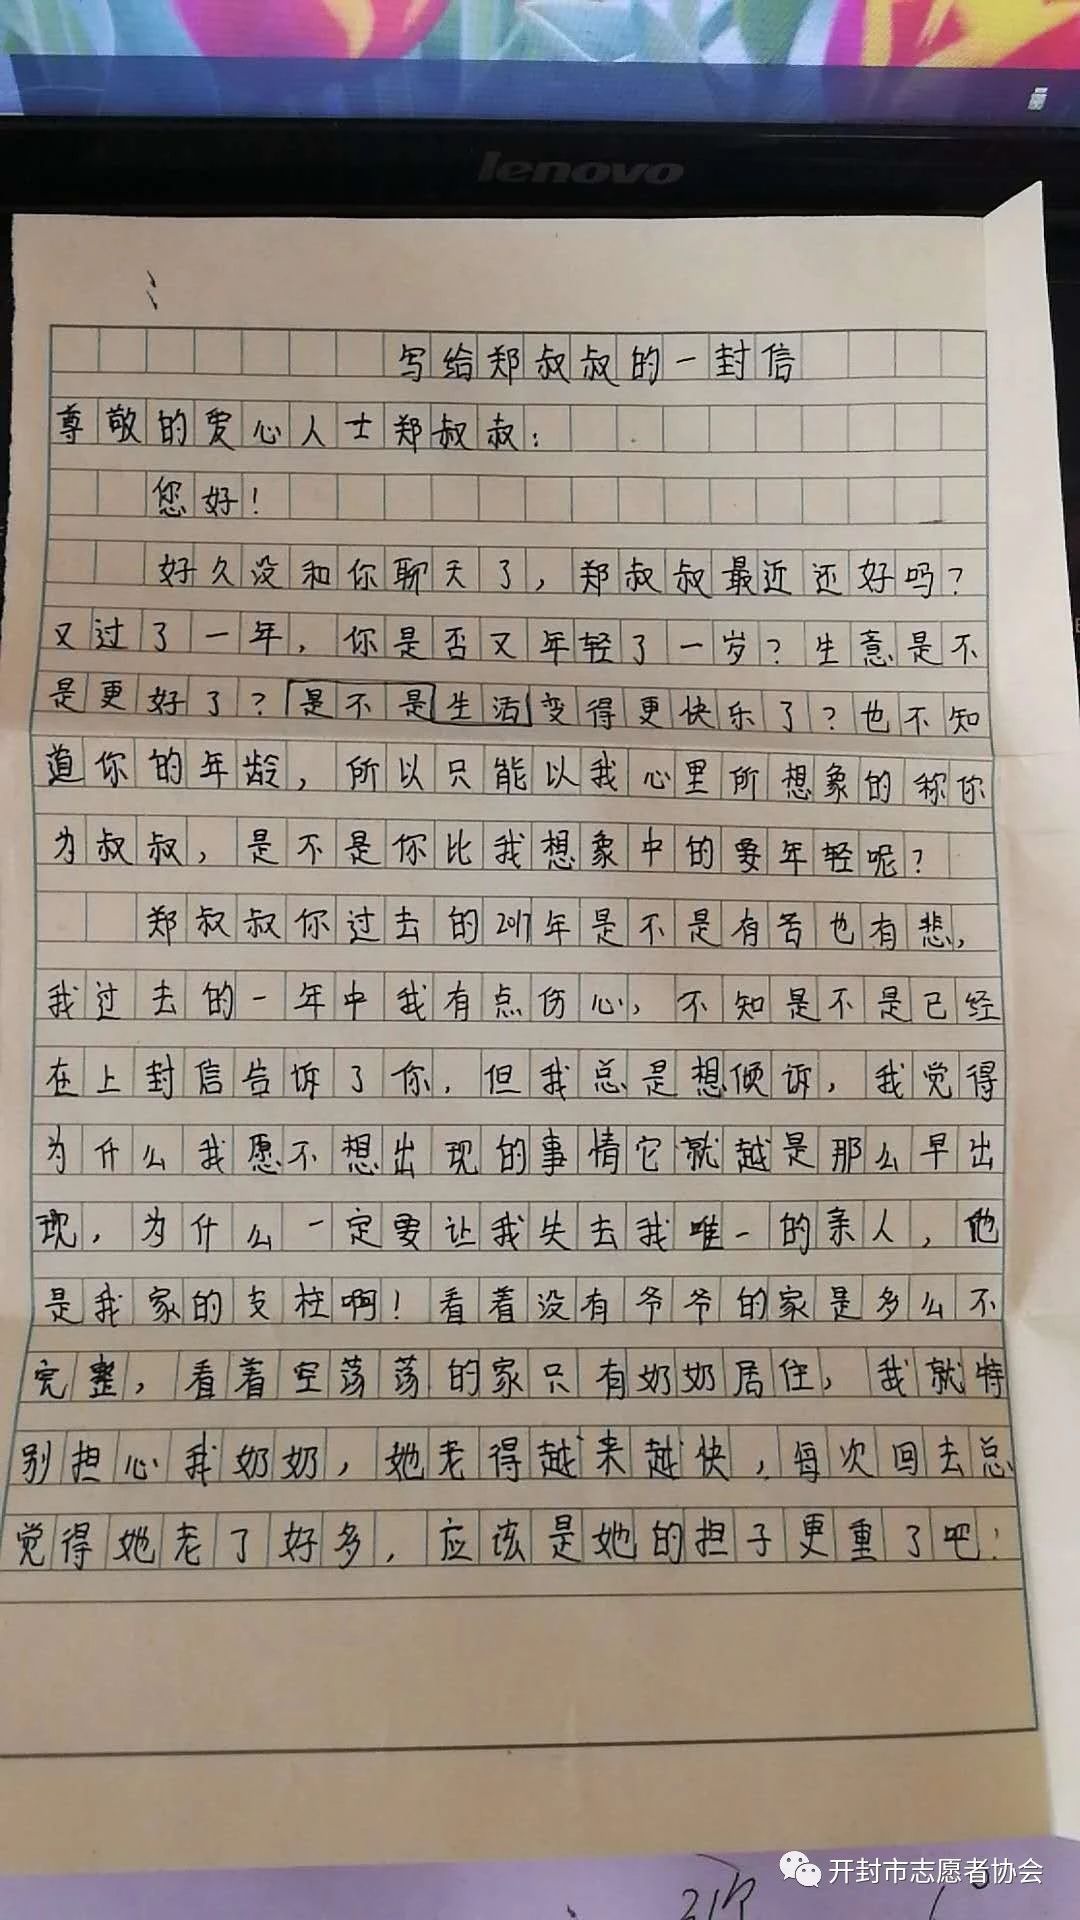 lenovo
写给郑叔叔的一封信
尊敬的爱心人士郑叔叔：
您好！
好久没和你聊天了，郑叔叔最近还好吗？
又过了一年，你是否又年轻了一岁？生意是不
是更好了？是不是生活变得更快乐了？也不知
道你的年龄，所以只能以我心里所想象的称你
为叔叔，是不是你比我想象中的要年轻呢？
郑叔叔你过去的2017年是不是有苦也有悲，
我过去的一年中我有点伤心，不知是不是已经
在上封信告诉了你，但我总是想倾诉，我觉得
为什么我愿不想出现的事情它就越是那么早出
现，为什么一定要让我失去我唯一的亲人，他
是我家的支柱啊！看着没有爷爷的家是多么不
完整，看着空荡荡的家只有奶奶居住，我就特
别担心我奶奶，她老得越来越快，每次回去总
觉得她老了好多，应该是她的担子更重了吧！
开封市志愿者协会